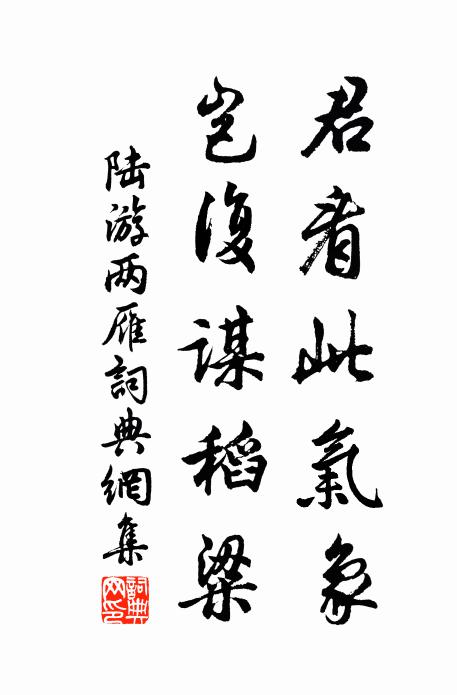 君看此氣象
豈復謀稻粱
陆游两雁詞典網集
詞典網印